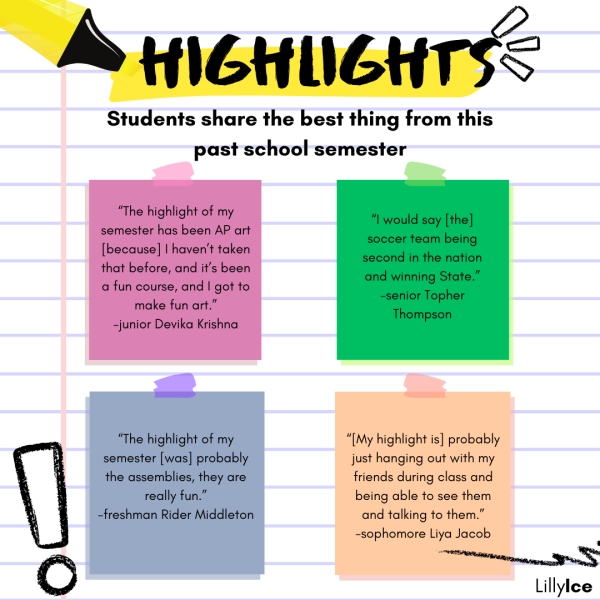 HIGHLIGHTS
Students share the best thing from this
past school semester
“The highlight of my
semester has been AP art
[because] I haven’t taken
that before, and it’s been
a fun course, and I got to
make fun art.”
-junior Devika Krishna
“I would say [the]
soccer team being
second in the nation
and winning State.”
-senior Topher
Thompson
“The highlight of my
semester [was] probably
the assemblies, they are
really fun.”
-freshman Rider Middleton
“[My highlight is] probably
just hanging out with my
friends during class and
being able to see them
and talking to them.”
-sophomore Liya Jacob
LillyIce